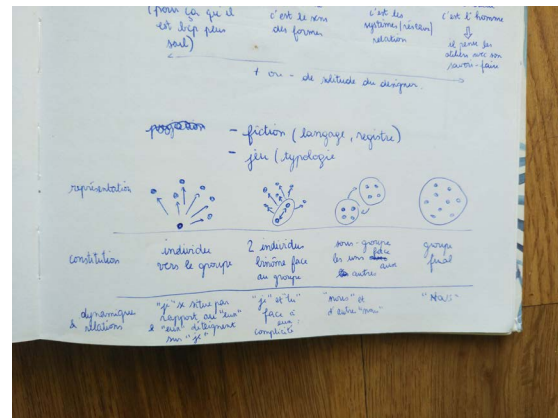 (pour ça que il
est bcp plus
seul)
c'est le sens
des formes
c'est les
systèmes/réseau/
relation
c'est l'homme
il pense les
ateliers avec son
savoir-faire
+ ou - de solitude du designer.
- fiction (langage, registre)
- jeu (typologie
représentation
constitution
individu
vers le groupe
2 individus
binôme face
au groupe
sous-groupe
les uns face aux
autre
groupe
final
dynamique
& relations
"je" se situe par
rapport au "eux"
& "eux" déteignent
sur "je"
"je" et "tu"
face à
eux
complicité
"nous" et
d'autre "nous"
"Nous"